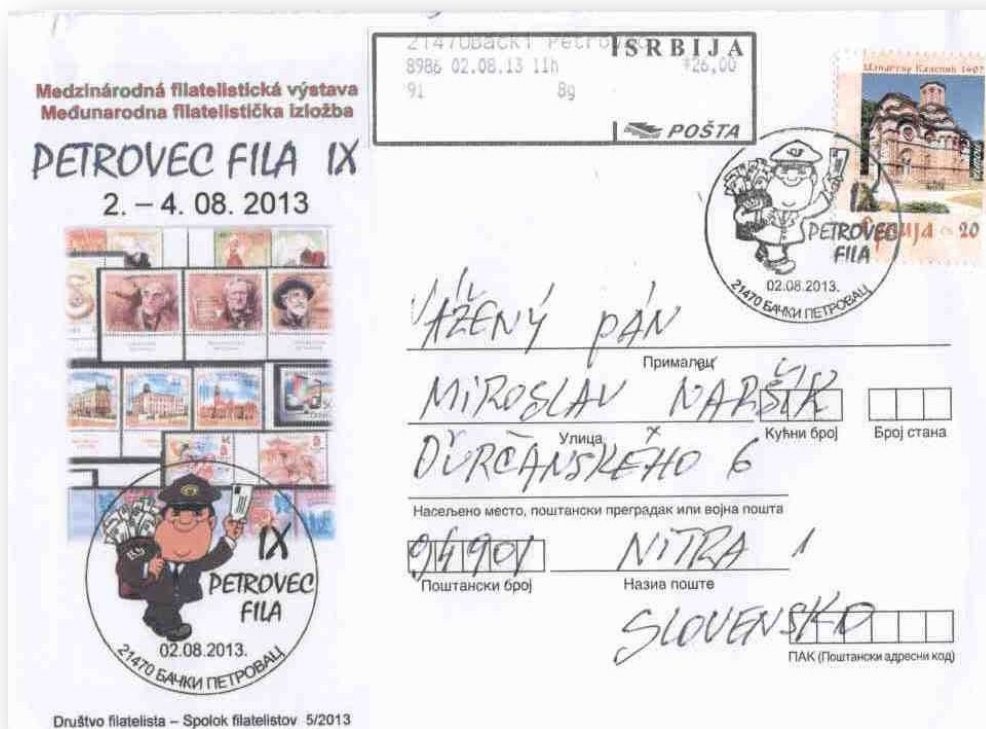 Medzinárodná filatelistická výstava
Međunarodna filatelistička izložba
PETROVEC FILA IX
2. – 4. 08. 2013
IX
PETROVEC
FILA
02.08.2013.
21470 БАЧКИ ПЕТРОВАЦ
Društvo filatelista – Spolok filatelistov 5/2013
21470Bački Petro
SRBIJA
8986 02.08.13 11h *26,00
91 8g
POŠTA
Манастир 1407
Србија 20
IX
PETROVEC
FILA
02.08.2013.
21470 БАЧКИ ПЕТРОВАЦ
VÁŽENÝ PÁN
Прималац
MIROSLAV NARŠÍK
Улица Кућни број Број стана
ĎURČANSKÉHO 6
Насељено место, поштански преградак или војна пошта
94901 NITRA 1
Поштански број Назив поште
SLOVENSKO
ПАК (Поштански адресни код)